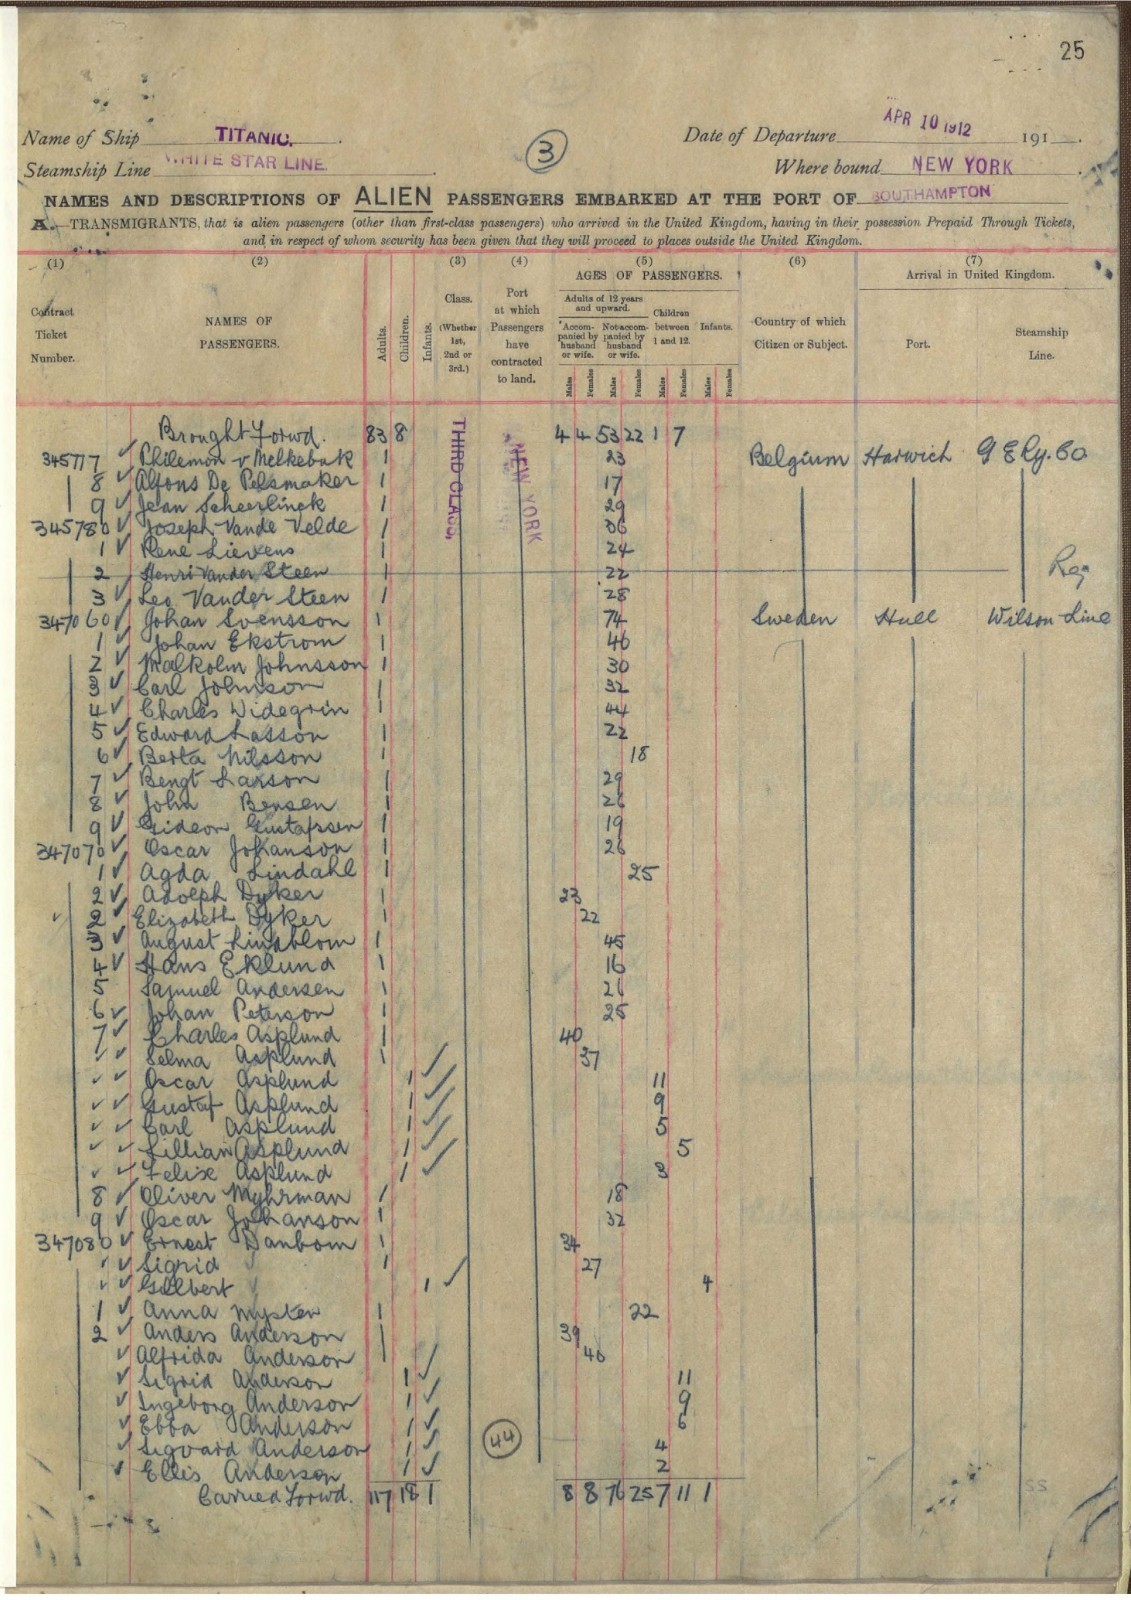 25
Name of Ship TITANIC. Date of Departure APR 10 1912 191
Steamship Line WHITE STAR LINE. 3 Where bound NEW YORK
NAMES AND DESCRIPTIONS OF ALIEN PASSENGERS EMBARKED AT THE PORT OF SOUTHAMPTON
A.—TRANSMIGRANTS, that is alien passengers (other than first-class passengers) who arrived in the United Kingdom, having in their possession Prepaid Through Tickets,
and in respect of whom security has been given that they will proceed to places outside the United Kingdom.
(1) (2) (3) (4) (5) (6) (7)
Contract Ticket Number.
NAMES OF PASSENGERS.
Adults.
Children.
Infants.
Class. (Whether 1st, 2nd or 3rd.)
Port at which Passengers have contracted to land.
AGES OF PASSENGERS.
Adults of 12 years and upward.
Accompanied by husband or wife.
Not accompanied by husband or wife.
Children between 1 and 12.
Infants.
Males Females Males Females Males Females Males Females
Country of which Citizen or Subject.
Arrival in United Kingdom.
Port.
Steamship Line.
THIRD CLASS.
NEW YORK
Brought Forwd. 83 8 4 4 53 22 1 7
345777 Philemon v Melkebuk 1 23 Belgium Harwich G E Ry. Co
8 Alfons De Pelsmaker 1 17
9 Jean Scheerlinck 1 29
345780 Joseph Vande Velde 1 36
1 Rene Lievens 1 24
2 Henri Vander Steen 1 22
3 Leo Vander Steen 1 28
347060 Johan Svensson 1 74 Sweden Hull Wilson Line
1 Johan Ekstrom 1 46
2 Malkolm Johnsson 1 30
3 Carl Johnson 1 32
4 Charles Widegrin 1 44
5 Edward Lasson 1 22
6 Berta Nilsson 1 18
7 Bengt Larson 1 29
8 John Bensen 1 26
9 Gideon Gustafssen 1 19
347070 Oscar Johanson 1 26
1 Agda Lindahl 1 25
2 Adolph Dyker 1 23
2 Elizabeth Dyker 1 22
3 August Lindblom 1 45
4 Hans Eklund 1 16
5 Samuel Andersen 1 26
6 Johan Peterson 1 25
7 Charles Asplund 1 40
Selma Asplund 1 37
Oscar Asplund 1 11
Gustaf Asplund 1 9
Carl Asplund 1 5
Lillian Asplund 1 5
Felix Asplund 1 3
8 Oliver Myhrman 1 18
9 Oscar Johanson 1 32
347080 Ernest Danbom 1 34
Sigrid 1 27
Gilbert 1 4
1 Anna Mysten 1 22
2 Anders Anderson 1 39
Alfrida Anderson 1 46
Sigrid Anderson 1 11
Ingeborg Anderson 1 9
Ebba Anderson 1 6
Sigvard Anderson 1 4
Ellis Anderson 1 2
44
Carried Forwd. 117 18 1 8 8 76 25 7 11 1
SS